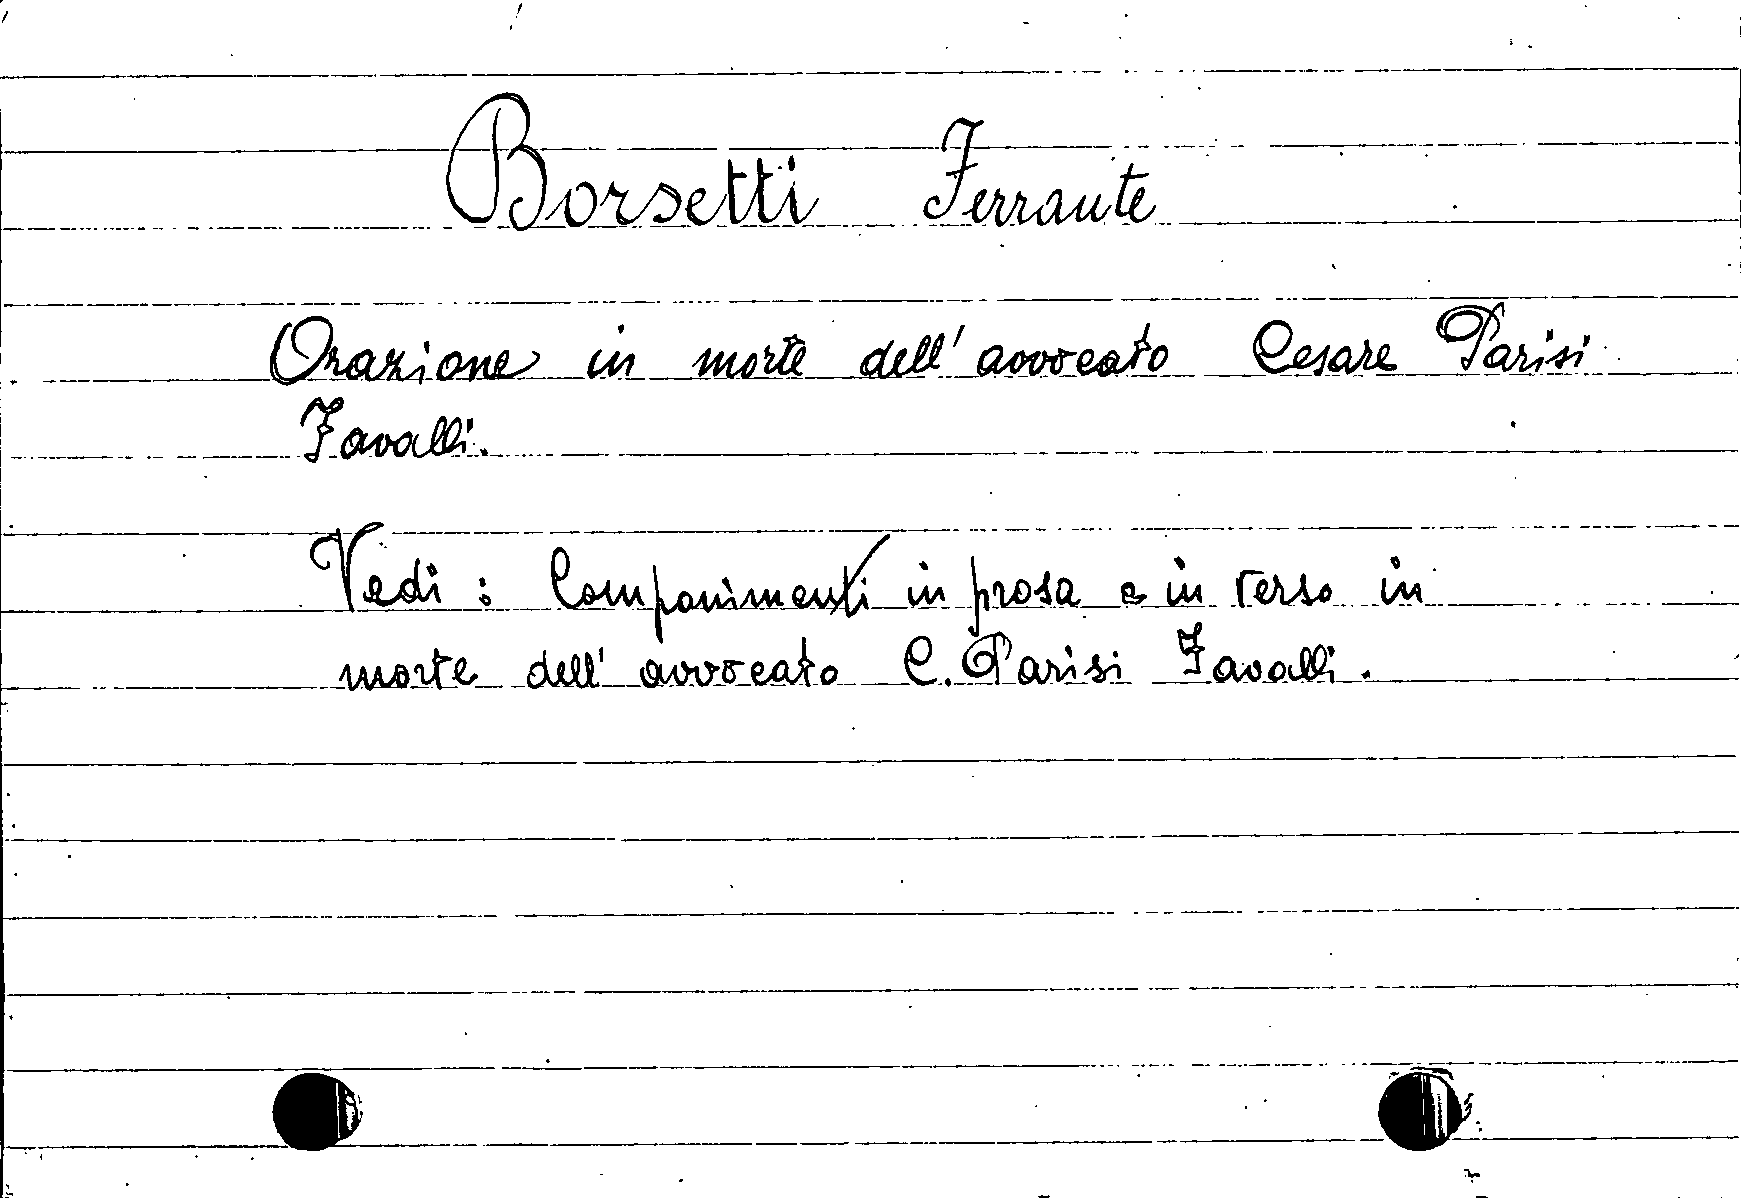 Borsetti Ferrante
Orazione in morte dell'avvocato Cesare Parisi
Favalli.
Vedi: Componimenti in prosa e in verso in
morte dell'avvocato C. Parisi Favalli.